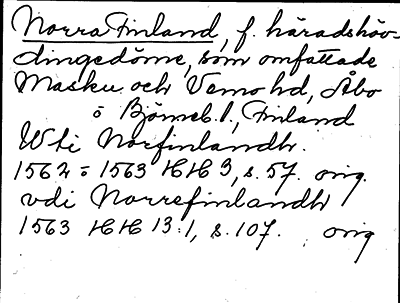 Norra Finland, f. häradshöv-
dingedöme, som omfattade
Masku och Vemo hd, Åbo
o Björneb. l., Finland
W ti Norfinlandh.
1562 = 1563 HH 3, s. 57. orig.
vdi Norrefinlandh
1563 HH 13:1, s. 107. orig